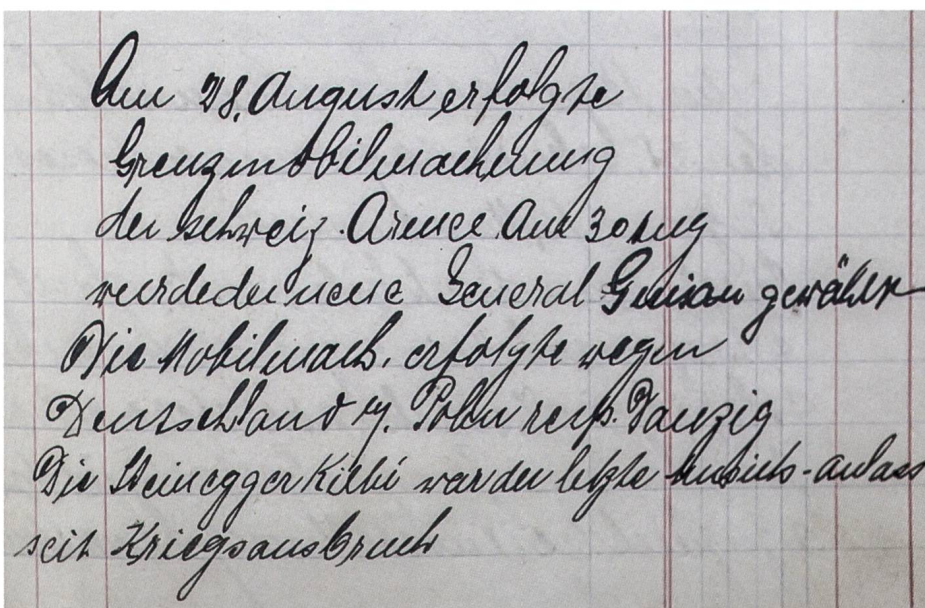 Am 28. August erfolgte
Grenzmobilmachung
der schweiz. Armee Am 30 Aug
wurde der neue General Guisan gewählt
Die Mobilmach. erfolgte wegen
Deutschland u. Polen resp. Danzig
Die Steinegger Kilbi war der letzte Musik-anlass
seit Kriegsausbruch